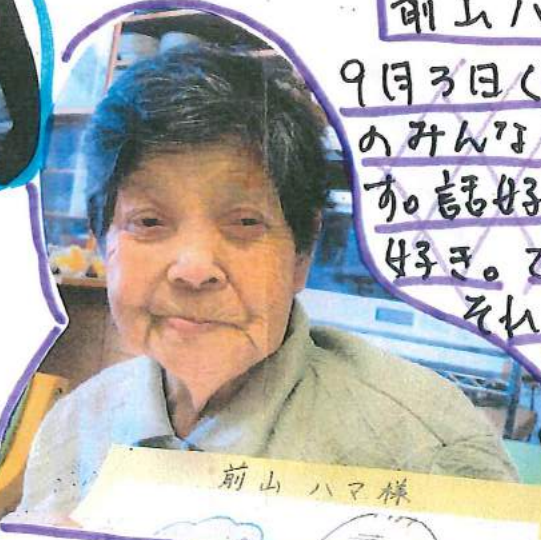 前山ハ
9月3日く
のみんな
す。話好
好き。て
それ
前山ハマ様